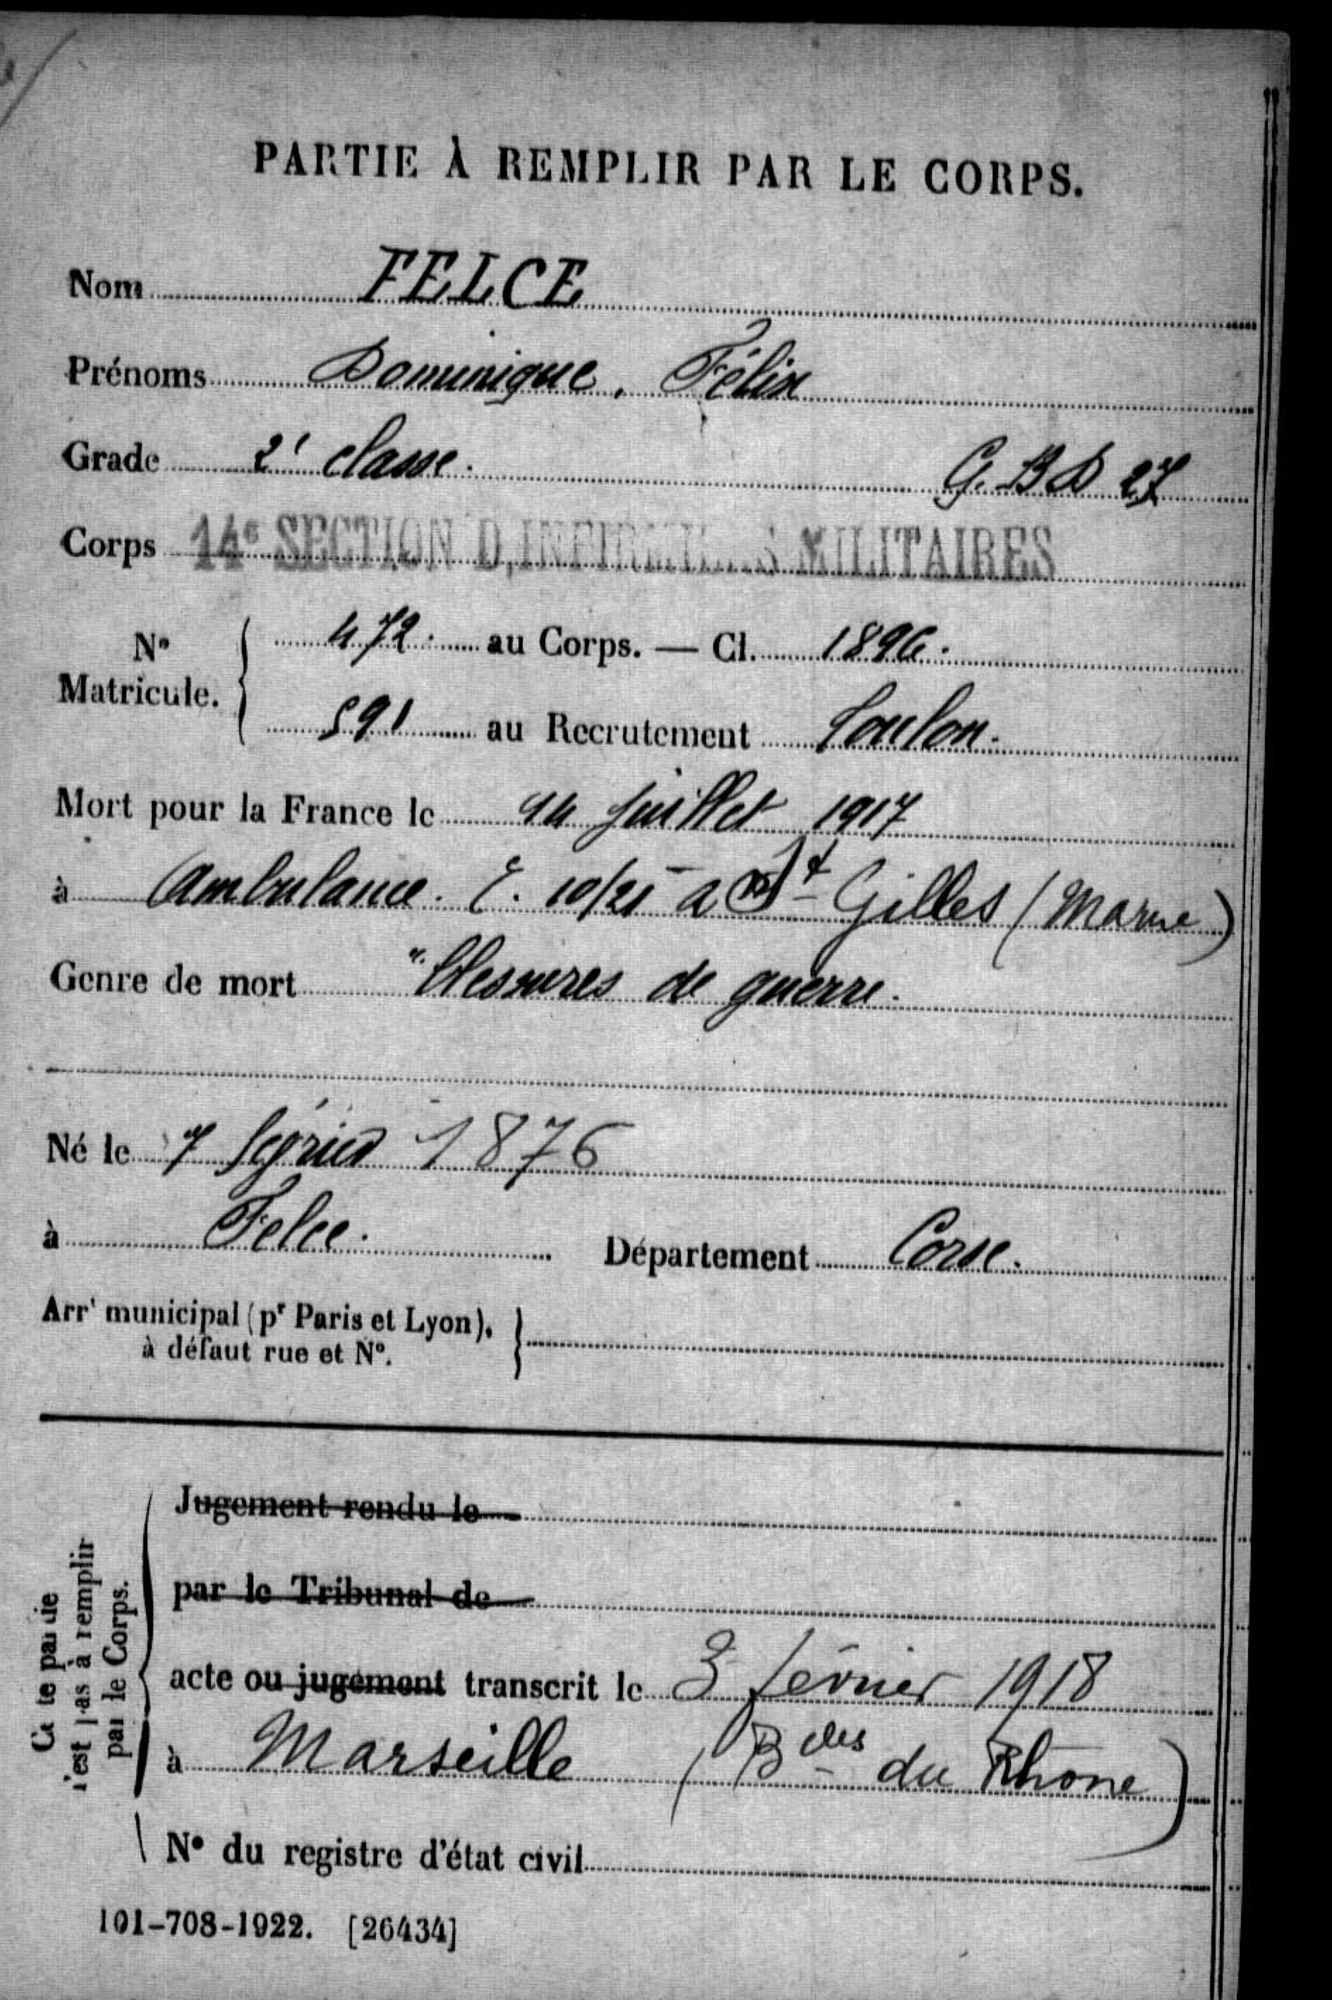 PARTIE À REMPLIR PAR LE CORPS.
Nom FELCE
Prénoms Dominique, Félix
Grade 2e classe. G.BD 27
Corps 14e SECTION D,INFIRMIERS MILITAIRES
No Matricule. 472. au Corps. — Cl. 1896.
591 au Recrutement Toulon.
Mort pour la France le 14 Juillet 1917
à Ambulance. 10/21 à St Gilles (Marne)
Genre de mort Blessures de guerre.
Né le 7 février 1876
à Felce. Département Corse.
Arrt municipal (pr Paris et Lyon),
à défaut rue et No.
Jugement rendu le
par le Tribunal de
acte ou jugement transcrit le 3 février 1918
à Marseille (Bches du Rhone)
No du registre d'état civil
Cette partie
n'est pas à remplir
par le Corps.
101-708-1922. [26434]